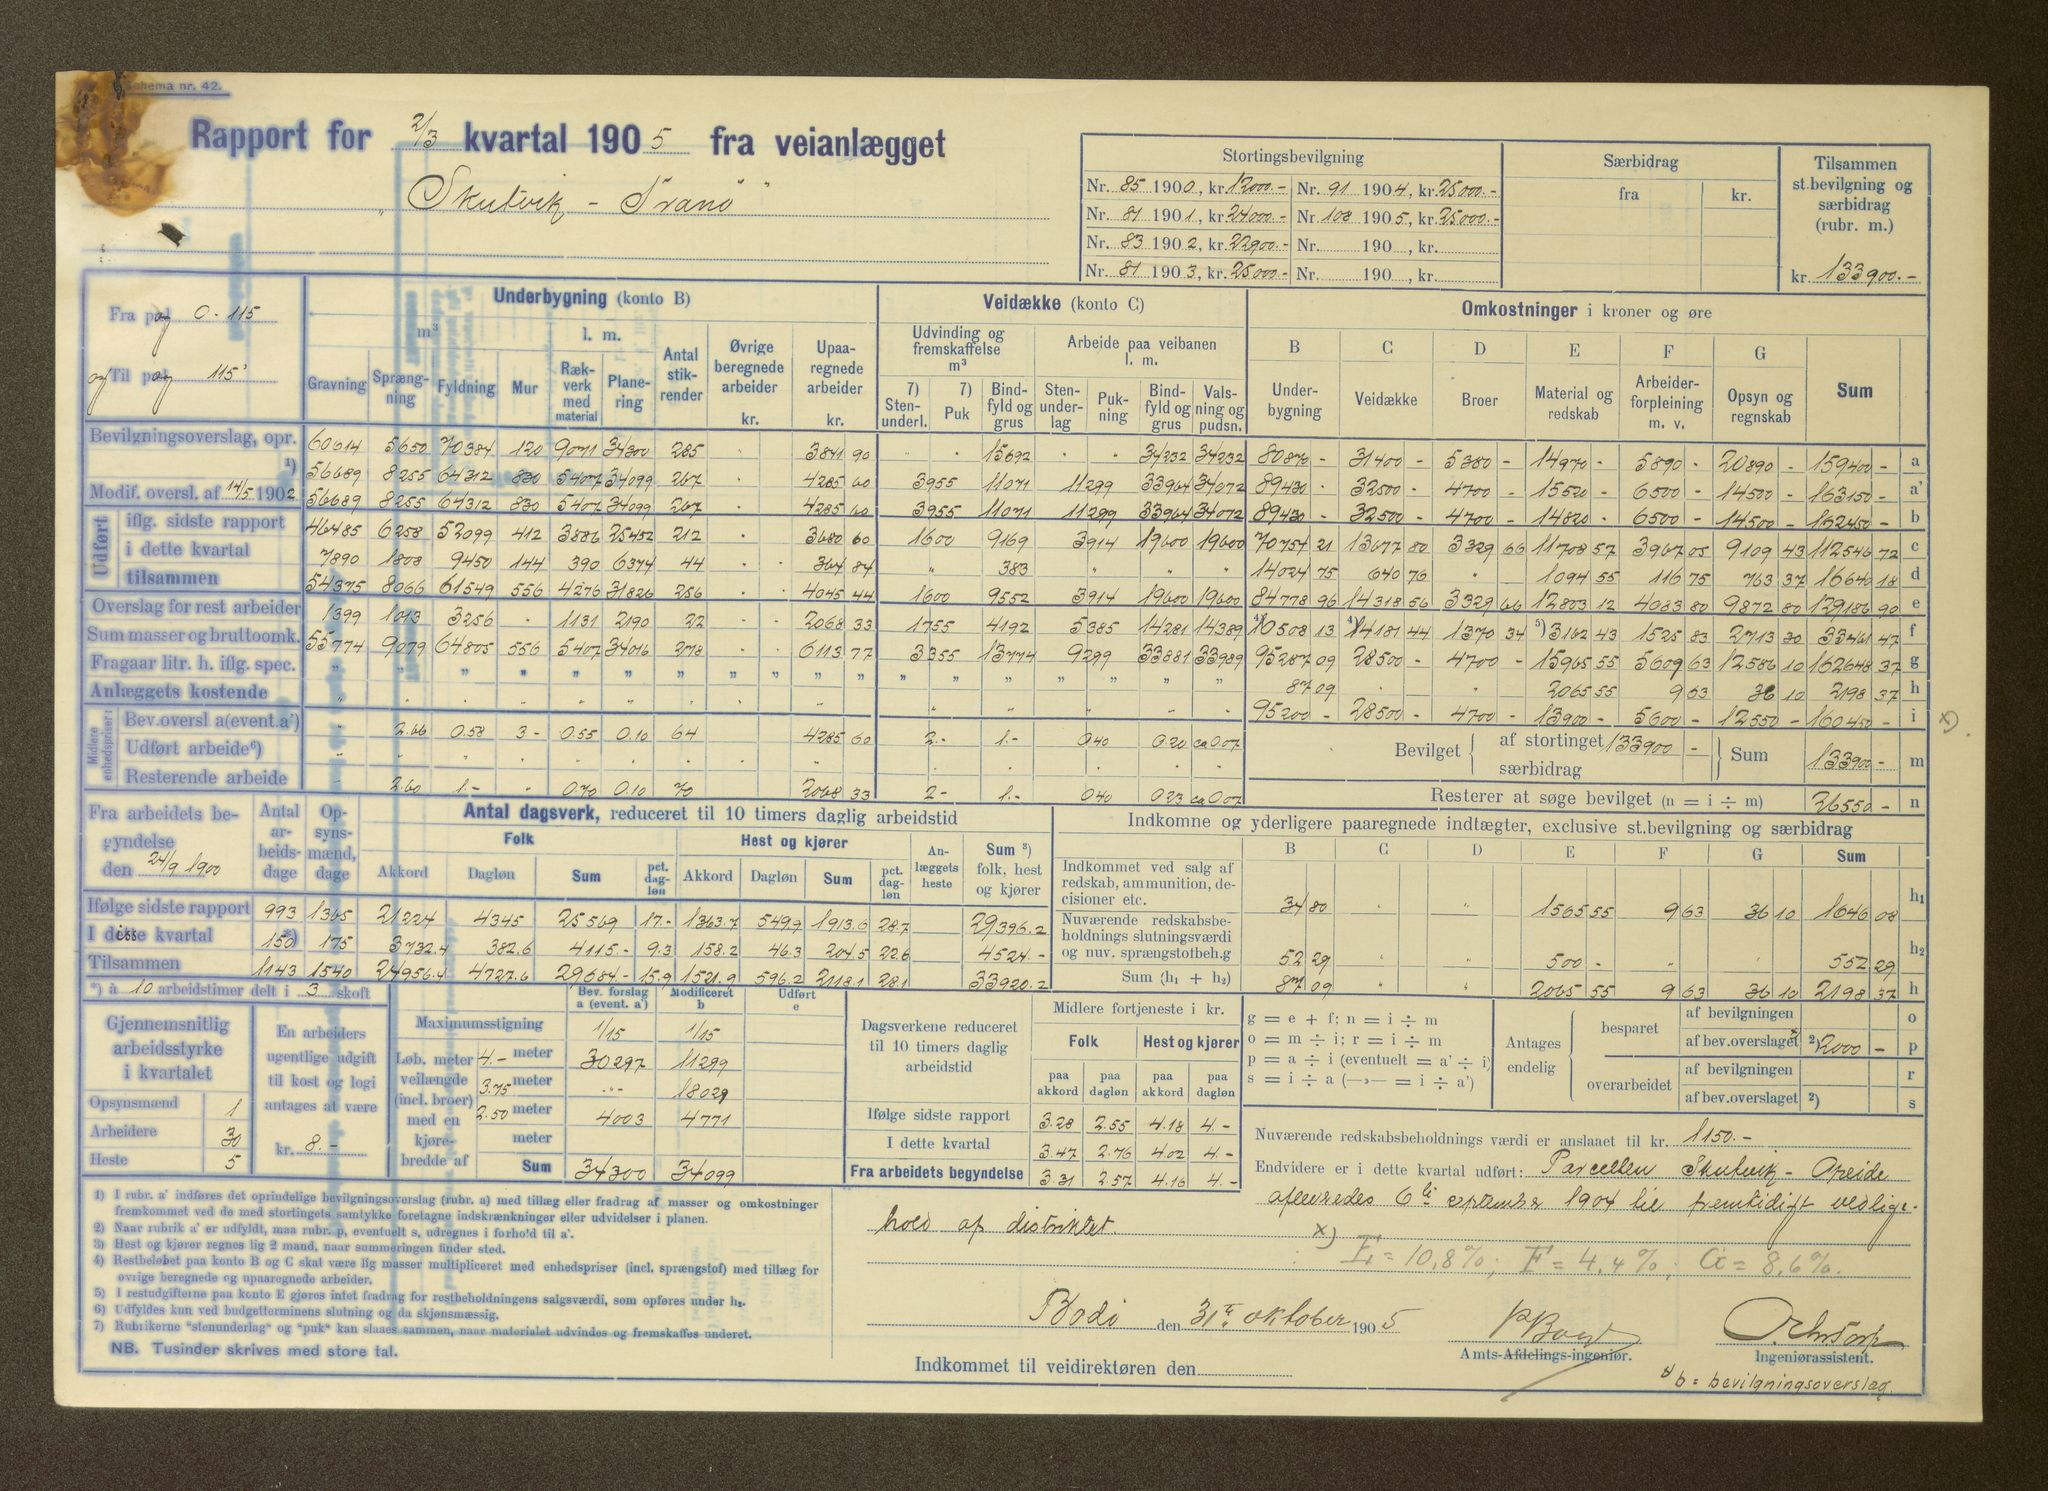 Schema nr. 42.
Rapport for 2/3 kvartal 1905 fra veianlægget
„Skutvik - Tranö"
Stortingsbevilgning
Nr. 85 1900, kr. 12000.- Nr. 91 1904, kr. 25000.-
Nr. 81 1901, kr. 24000.- Nr. 108 1905, kr. 25000.-
Nr. 83 1902, kr. 22900.- Nr. 190 , kr.
Nr. 81 1903, kr. 25000.- Nr. 190 , kr.
Særbidrag
fra kr.
Tilsammen
st.bevilgning og
særbidrag
(rubr. m.)
kr. 133900.-
Fra pæl og 0 - 115
og Til pæl og 115'
Underbygning (konto B)
m³ l. m.
Gravning Sprængning Fyldning Mur Rækverk med material Planering Antal stikrender Øvrige beregnede arbeider kr. Upaaregnede arbeider kr.
Veidække (konto C)
Udvinding og fremskaffelse m³ Arbeide paa veibanen l. m.
7) Stenunderl. 7) Puk Bindfyld og grus Stenunderlag Pukning Bindfyld og grus Valsning og pudsn.
Omkostninger i kroner og øre
B C D E F G
Underbygning Veidække Broer Material og redskab Arbeiderforpleining m. v. Opsyn og regnskab Sum
Bevilgningsoverslag, opr. 60614 5650 70384 120 9071 34300 285 3841 90 15692 34232 34232 80870 - 31400 - 5380 - 14970 - 5890 - 20890 - 159400 - a
1) 56689 8255 64312 830 5407 34099 267 4285 60 3955 11071 11299 33964 34072 89430 - 32500 - 4700 - 15520 - 6500 - 14500 - 163150 - a'
Modif. oversl. af 14/5 1902 56689 8255 64312 830 5407 34099 267 4285 60 3955 11071 11299 33964 34072 89430 - 32500 - 4700 - 14820 - 6500 - 14500 - 162450 - b
Udført
iflg. sidste rapport 46485 6258 52099 412 3886 25452 212 3680 60 1600 9169 3914 19600 19600 70754 21 13677 80 3329 66 11708 57 3967 05 9109 43 112546 72 c
i dette kvartal 7890 1808 9450 144 390 6374 44 364 84 " 383 " " " 14024 75 640 76 " 1094 55 116 75 763 37 16640 18 d
tilsammen 54375 8066 61549 556 4276 31826 256 4045 44 1600 9552 3914 19600 19600 84778 96 14318 56 3329 66 12803 12 4083 80 9872 80 129186 90 e
Overslag for rest arbeider 1399 1013 3256 - 1131 2190 22 2068 33 1755 4192 5385 14281 14389 4) 10508 13 4) 14181 44 1370 34 5) 3162 43 1525 83 2713 30 33461 47 f
Sum masser og bruttoomk. 55774 9079 64805 556 5407 34016 278 6113 77 3355 13774 9299 33881 33989 95287 09 28500 - 4700 - 15965 55 5609 63 12586 10 162648 37 g
Fragaar litr. h. iflg. spec. " " " " " " " " " " " " " " " " 87 09 2065 55 9 63 36 10 2198 37 h
Anlæggets kostende 95200 - 28500 - 4700 - 13900 - 5600 - 12550 - 160450 - i x)
Midlere enhedspriser:
Bev.oversl a (event. a') 2.66 0.58 3- 0.55 0.10 64 4285 60 2.- 1.- 0.40 0.20 ca 0.07
Udført arbeide 6)
Resterende arbeide 2.60 1.- 0.70 0.10 70 2068 33 2- 1.- 0.40 0.23 ca 0.07
Bevilget af stortinget 133900 - særbidrag Sum 133900 - m
Resterer at søge bevilget (n = i ÷ m) 26550 - n
Fra arbeidets begyndelse
den 24/9 1900
Antal arbeidsdage Opsynsmænd, dage
Antal dagsverk, reduceret til 10 timers daglig arbeidstid
Folk Hest og kjører Anlæggets heste Sum 3) folk, hest og kjører
Akkord Dagløn Sum pct. dagløn Akkord Dagløn Sum pct. dagløn
Ifølge sidste rapport 993 1365 21224 4345 25569 17.- 1363.7 549.9 1913.6 28.7 29396.2
I disse kvartal 150 *) 175 3732.4 382.6 4115.- 9.3 158.2 46.3 204.5 22.6 4524.-
Tilsammen 1143 1540 24956.4 4727.6 29684- 15.9 1521.9 596.2 2118.1 28.1 33920.2
*) à 10 arbeidstimer delt i 3 skoft
Indkomne og yderligere paaregnede indtægter, exclusive st.bevilgning og særbidrag
B C D E F G Sum
Indkommet ved salg af redskab, ammunition, decisioner etc. 34 80 1565 55 9 63 36 10 1646 08 h₁
Nuværende redskabsbeholdnings slutningsværdi og nuv. sprængstofbeh.g 52 29 500 - 552 29 h₂
Sum (h₁ + h₂) 87 09 2065 55 9 63 36 10 2198 37 h
Gjennemsnitlig arbeidsstyrke i kvartalet
Opsynsmænd 1
Arbeidere 30
Heste 5
En arbeiders ugentlige udgift til kost og logi antages at være
kr. 8.-
Bev. forslag a (event. a') Modificeret b Udført e
Maximumsstigning 1/15 1/15
Løb. meter veilængde (incl. broer) med en kjørebredde af
4.- meter 30297 11299
3.75 meter " 18029
2.50 meter 4003 4771
meter
Sum 34300 34099
Dagsverkene reduceret til 10 timers daglig arbeidstid
Midlere fortjeneste i kr.
Folk Hest og kjører
paa akkord paa dagløn paa akkord paa dagløn
Ifølge sidste rapport 3.28 2.55 4.18 4.-
I dette kvartal 3.47 2.76 4.02 4.-
Fra arbeidets begyndelse 3.31 2.57 4.16 4.-
g = e + f; n = i ÷ m
o = m ÷ i; r = i ÷ m
p = a ÷ i (eventuelt = a' ÷ i)
s = i ÷ a (—»— = i ÷ a')
Antages endelig
besparet af bevilgningen o
af bev.overslaget x 2) 2000 - p
overarbeidet af bevilgningen r
af bev.overslaget 2) s
Nuværende redskabsbeholdnings værdi er anslaaet til kr. 1150.-
Endvidere er i dette kvartal udført: Parcellen Skutvik - Opeide
afleveredes 6te september 1904 til fremtidigt vedlige-
hold af distriktet.
x) E = 10,8 %; F = 4,4 %; G = 8,6 %.
1) I rubr. a' indføres det oprindelige bevilgningsoverslag (rubr. a) med tillæg eller fradrag af masser og omkostninger
fremkommet ved de med stortingets samtykke foretagne indskrænkninger eller udvidelser i planen.
2) Naar rubrik a' er udfyldt, maa rubr. p, eventuelt s, udregnes i forhold til a'.
3) Hest og kjører regnes lig 2 mand, naar summeringen finder sted.
4) Restbeløbet paa konto B og C skal være lig masser multipliceret med enhedspriser (incl. sprængstof) med tillæg for
øvrige beregnede og upaaregnede arbeider.
5) I restudgifterne paa konto E gjøres intet fradrag for restbeholdningens salgsværdi, som opføres under h₂.
6) Udfyldes kun ved budgetterminens slutning og da skjønsmæssig.
7) Rubrikerne "stenunderlag" og "puk" kan slaaes sammen, naar materialet udvindes og fremskaffes underet.
NB. Tusinder skrives med store tal.
Bodö den 31te oktober 1905
Amts-Afdelings-ingeniør.
Ingeniørassistent.
Indkommet til veidirektøren den
x) b = bevilgningsoverslag.